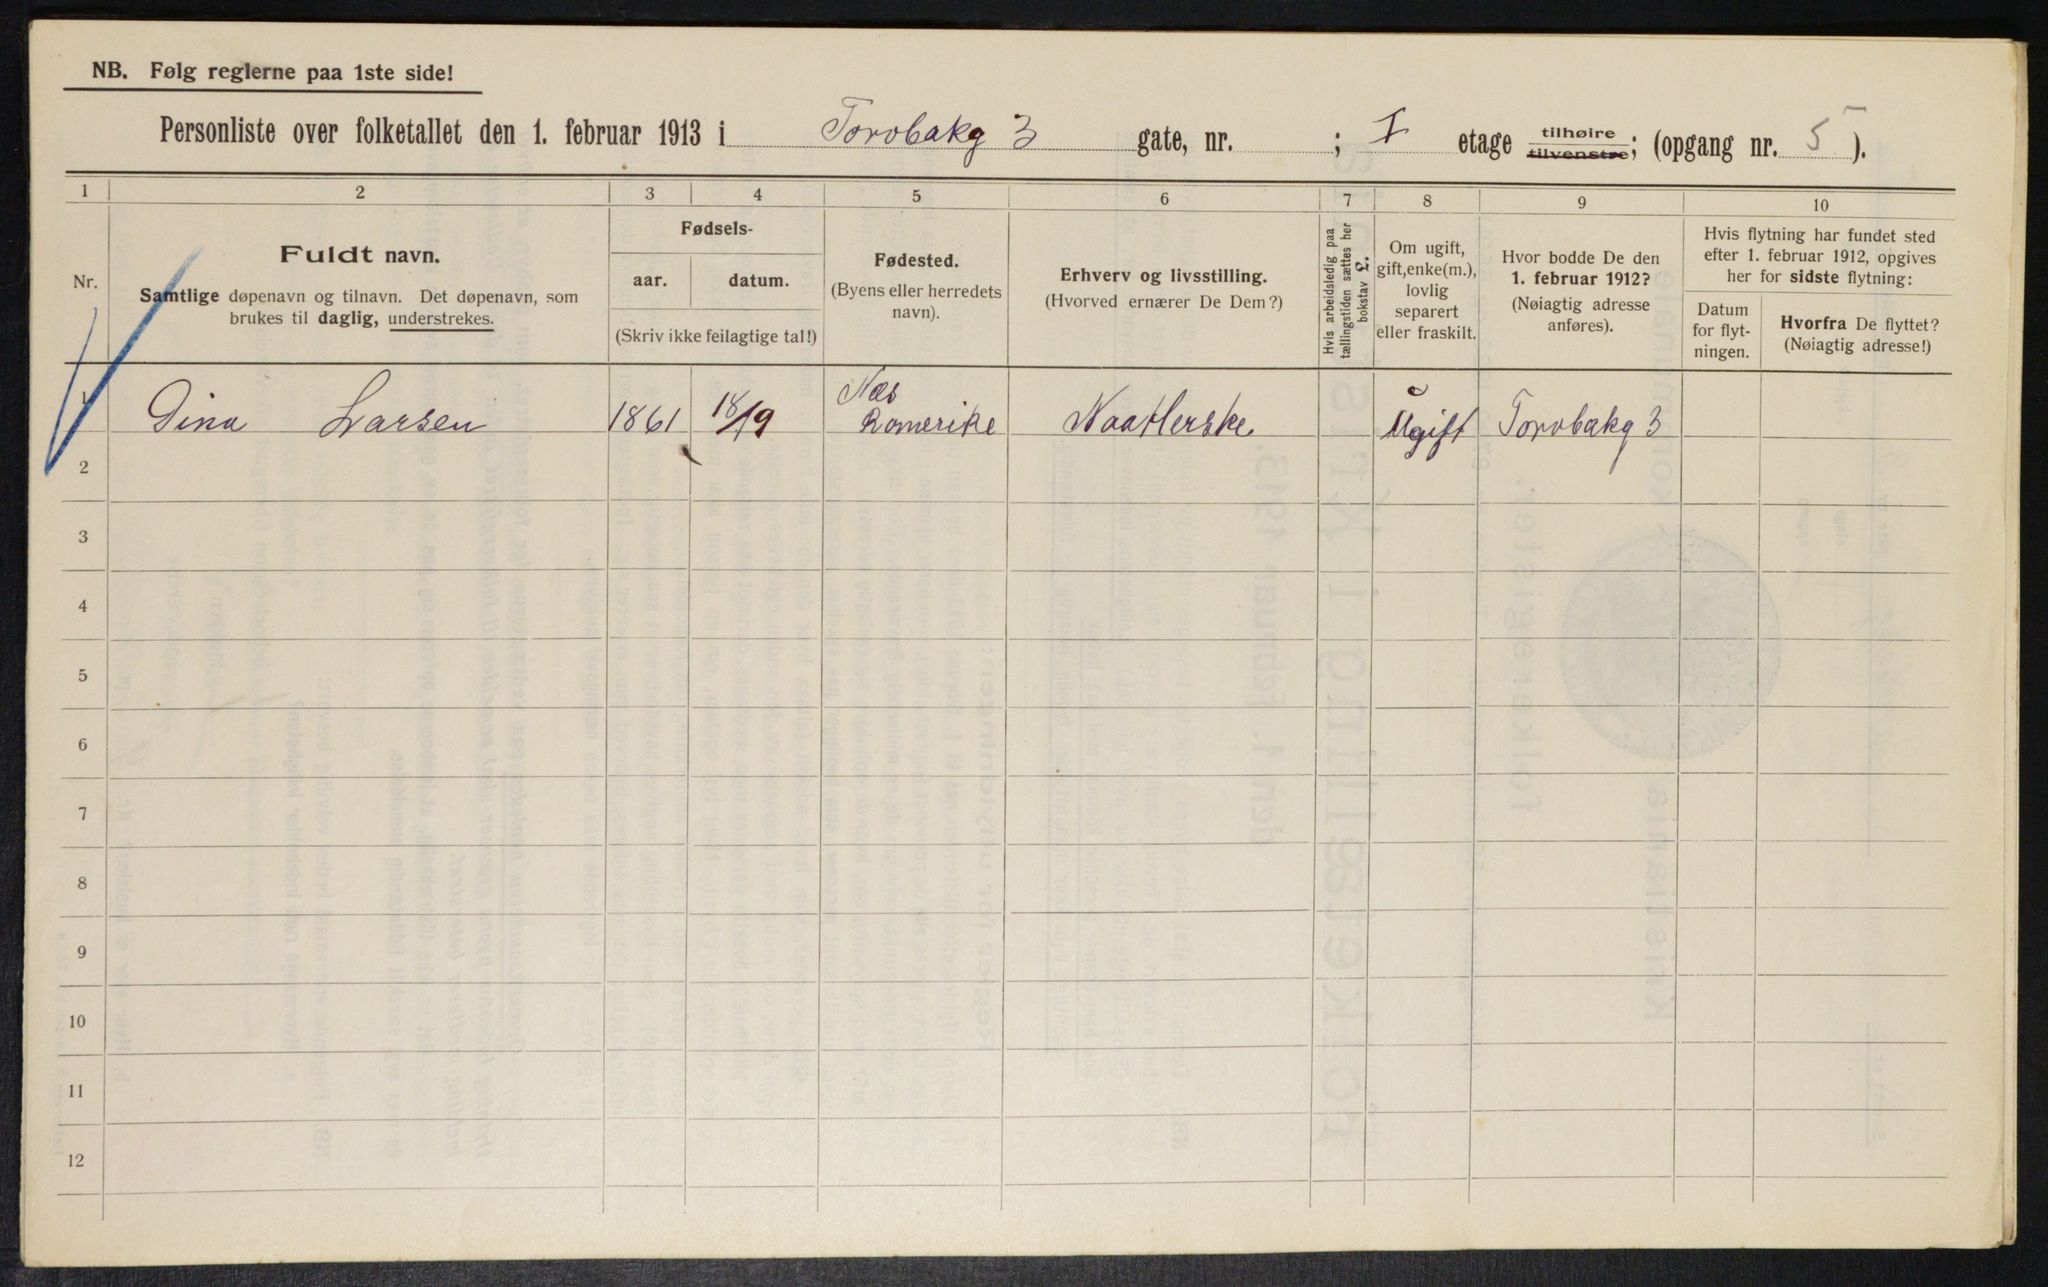 NB. Følg reglerne paa 1ste side!
Personliste over folketallet den 1. februar 1913 i Torvbakg 3 gate, nr. ; I etage tilhøire tilvenstre; (opgang nr. 5).
1 2 3 4 5 6 7 8 9 10
Nr.
Fuldt navn.
Samtlige døpenavn og tilnavn. Det døpenavn, som
brukes til daglig, understrekes.
Fødsels-
aar. datum.
(Skriv ikke feilagtige tal!)
Fødested.
(Byens eller herredets
navn).
Erhverv og livsstilling.
(Hvorved ernærer De Dem?)
Hvis arbeidsledig paa
tællingstiden sættes her
bokstav L.
Om ugift,
gift, enke(m.),
lovlig
separert
eller fraskilt.
Hvor bodde De den
1. februar 1912?
(Nøiagtig adresse
anføres).
Hvis flytning har fundet sted
efter 1. februar 1912, opgives
her for sidste flytning:
Datum
for flyt-
ningen.
Hvorfra De flyttet?
(Nøiagtig adresse!)
1 Dina Larsen 1861 18/9 Næs Romerike Naatlerske Ugift Torvbakg 3
2
3
4
5
6
7
8
9
10
11
12